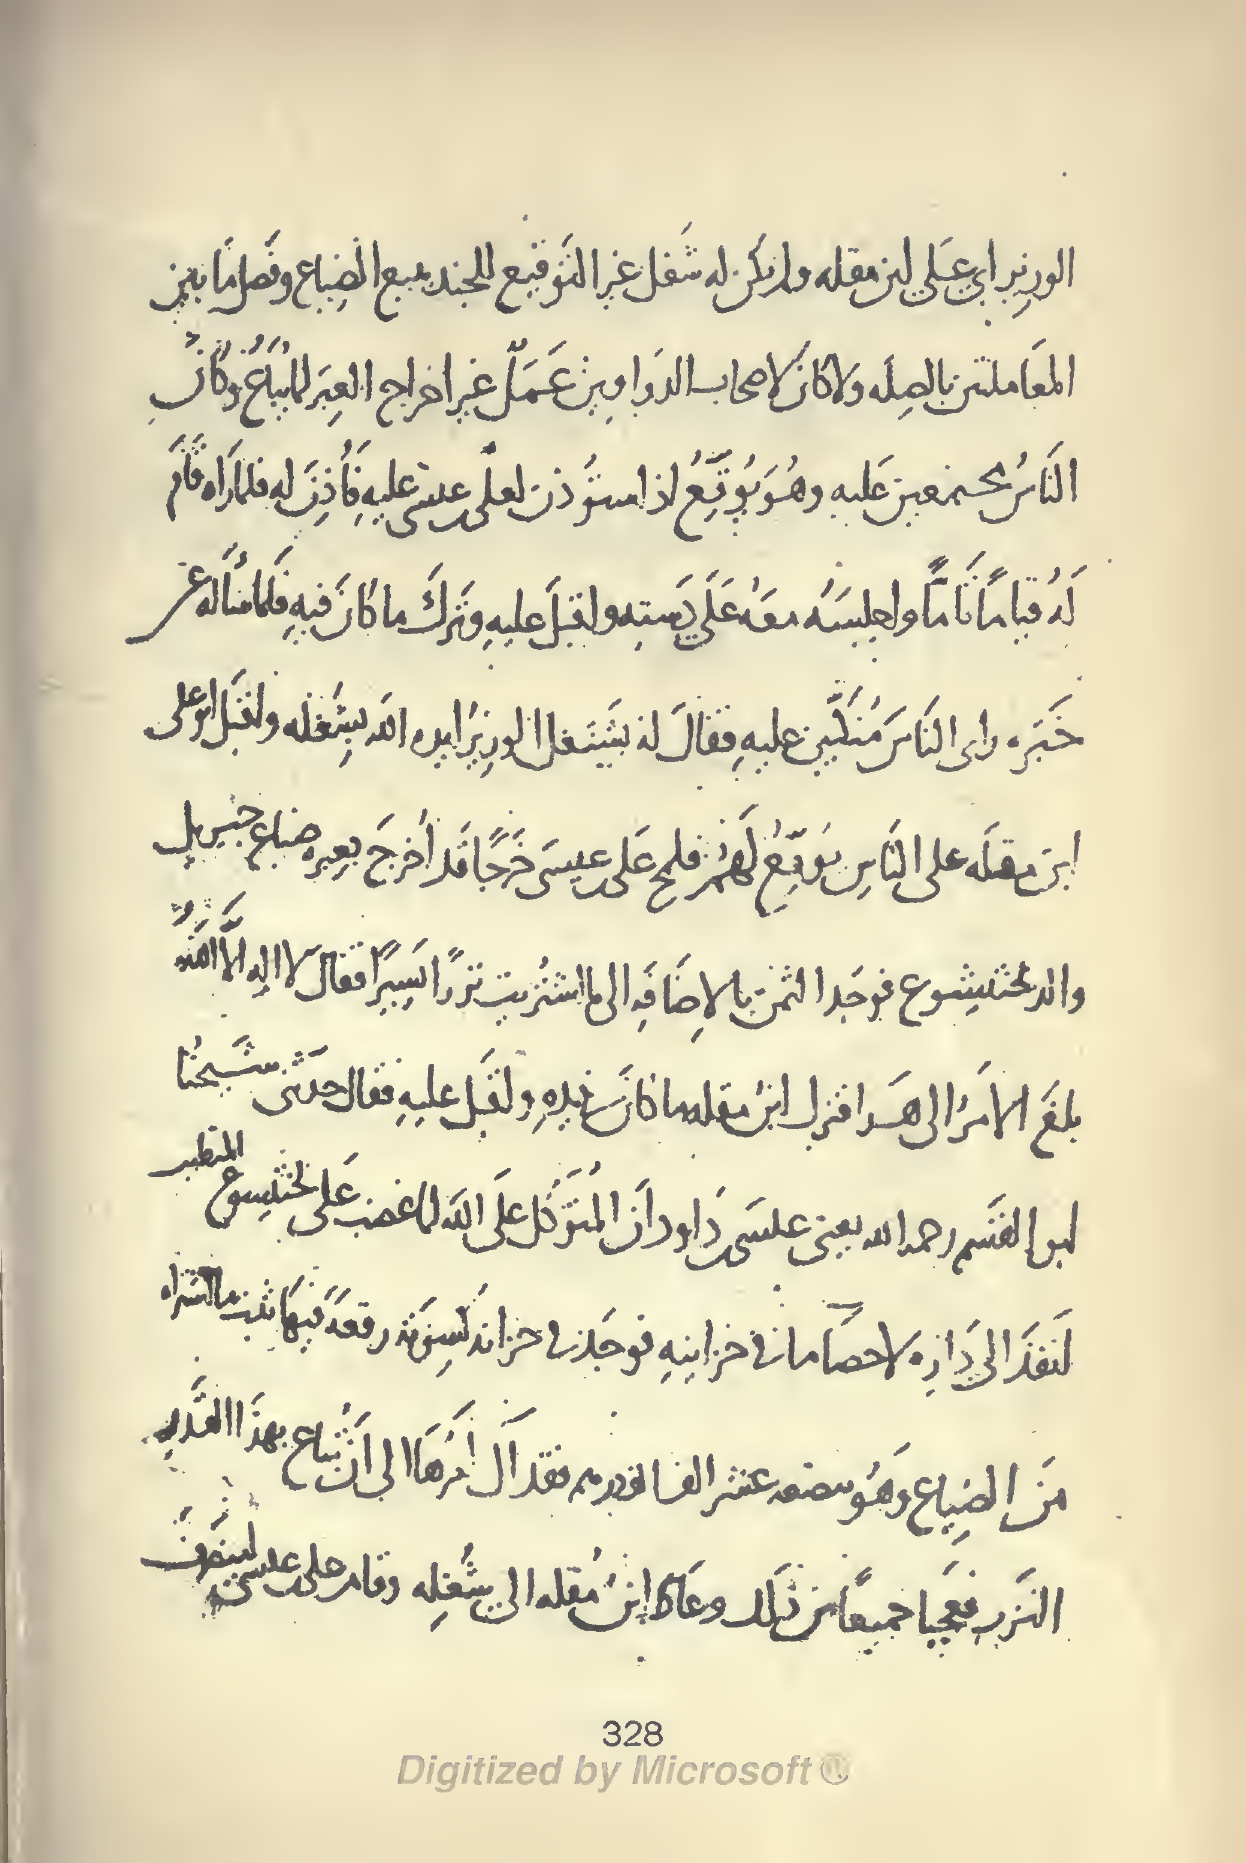 الوزير ابي عَلي ابن مقله ولم يكن له شغل غير التَوقيع للجند ببيع الضِياع وفصل مَا بين
المعَاملتين بالصِله ولا كان لاصحاب الدَواوين عَمَل غير اخراج العِبَر لما يُبَاع وكانَ
النَاسُ مجتمعين عَليه وهُوَ يُوَقّعُ اذ استُوذن لعلي بن عيسى عليه فَأُذِنَ له فلما رَاه قَام
لَهُ قيامًا تَامًّا واجلسَهُ معَهُ عَلَى دَسته واقبَلَ عليهِ وتركَ ما كانَ فيهِ فَلمّا سَأله عن
خَبَره راى النَاسَ مُنكَبّين عليهِ فقالَ له يشتَغل الوزيرُ ايده الله بشغله واقبَل ابو على
ابن مقلَه على النَاسِ يُوَقّعُ لَهُمْ فلمح عَلى بن عيسَى خَرجًا قَد أُخرجَ بعِبره ضياع جبريل
والد بختيشوع فوجَد الثمن بالاِضَافَه الى ما اشتُريت نَزرًا يَسيرًا فقال لا اله الَّا اللهُ
بلغَ الامرُ الى هَـذا فترك ابنُ مقله ما كانَ في يدهِ واقبَل عليهِ فقال حدثنى شَيخُنا
ابو القسَم رحمه الله يعنى عيسَى بن دَاود اَن المُتَوَكّل علَى الله لما غضب عَلى بختيشوع المتطبب
اَنفذ الى دَاره لاحصَا ما في خزاينهِ فوجد في خزانة كسوته رقعَةً فيهَا ثبت ما اشتراه
مَن الضِياع وهُو بضعه عشر الف الف درهم فقد آل أمرهَا الى اَن تُباع بهذَا القَدر
النَزرِ فعَجبا جميعًا من ذلك وعَاد ابنُ مُقله الى شُغِله وقام على بن عيسى لينصَرفَ
328
Digitized by Microsoft ®